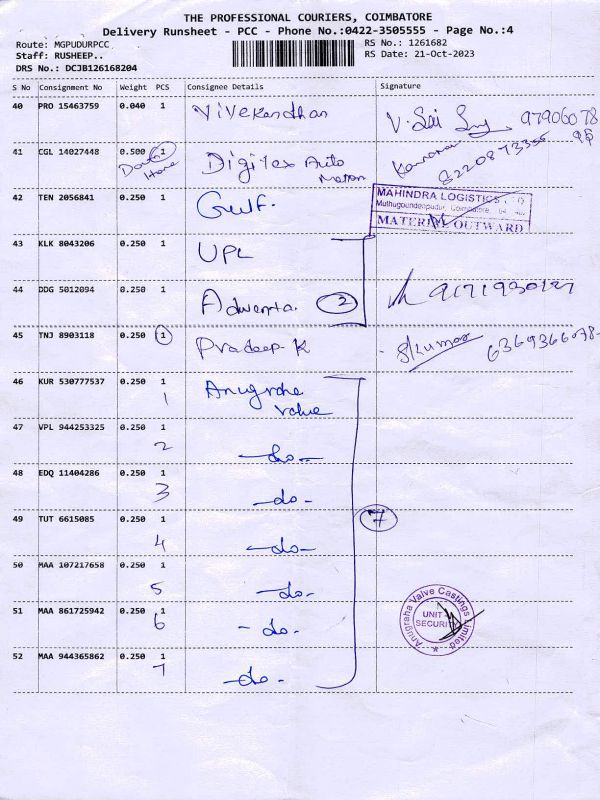 THE PROFESSIONAL COURIERS, COIMBATORE
Delivery Runsheet - PCC - Phone No.:0422-3505555 - Page No.:4
Route: MGPUDURPCC
Staff: RUSHEEP..
DRS No.: DCJB126168204
RS No.: 1261682
RS Date: 21-Oct-2023
S No Consignment No Weight PCS Consignee Details Signature
40 PRO 15463759 0.040 1 Vivekandhan V. Sai 97906078
41 CGL 14027448 0.500 1 Digitex Auto
mation
8220873356
42 TEN 2056841 0.250 1 Gulf.
MAHINDRA LOGISTICS LTD
Muthugoundenpudur, Coimbatore
MATERIAL OUTWARD
43 KLK 8043206 0.250 1 UPL
44 DDG 5012094 0.250 1 Adwenta. 2
45 TNJ 8903118 0.250 1 Pradeep K S/kumar 6369366078
46 KUR 530777537 0.250 1 Anugraha
valve
1
47 VPL 944253325 0.250 1 -do-
2
48 EDQ 11404286 0.250 1 -do-
3
49 TUT 6615085 0.250 1 -do- 7
4
50 MAA 107217658 0.250 1 -do-
5
51 MAA 861725942 0.250 1 -do-
6
Anugraha Valve Castings Limited
UNIT
SECURITY
52 MAA 944365862 0.250 1 -do-
7